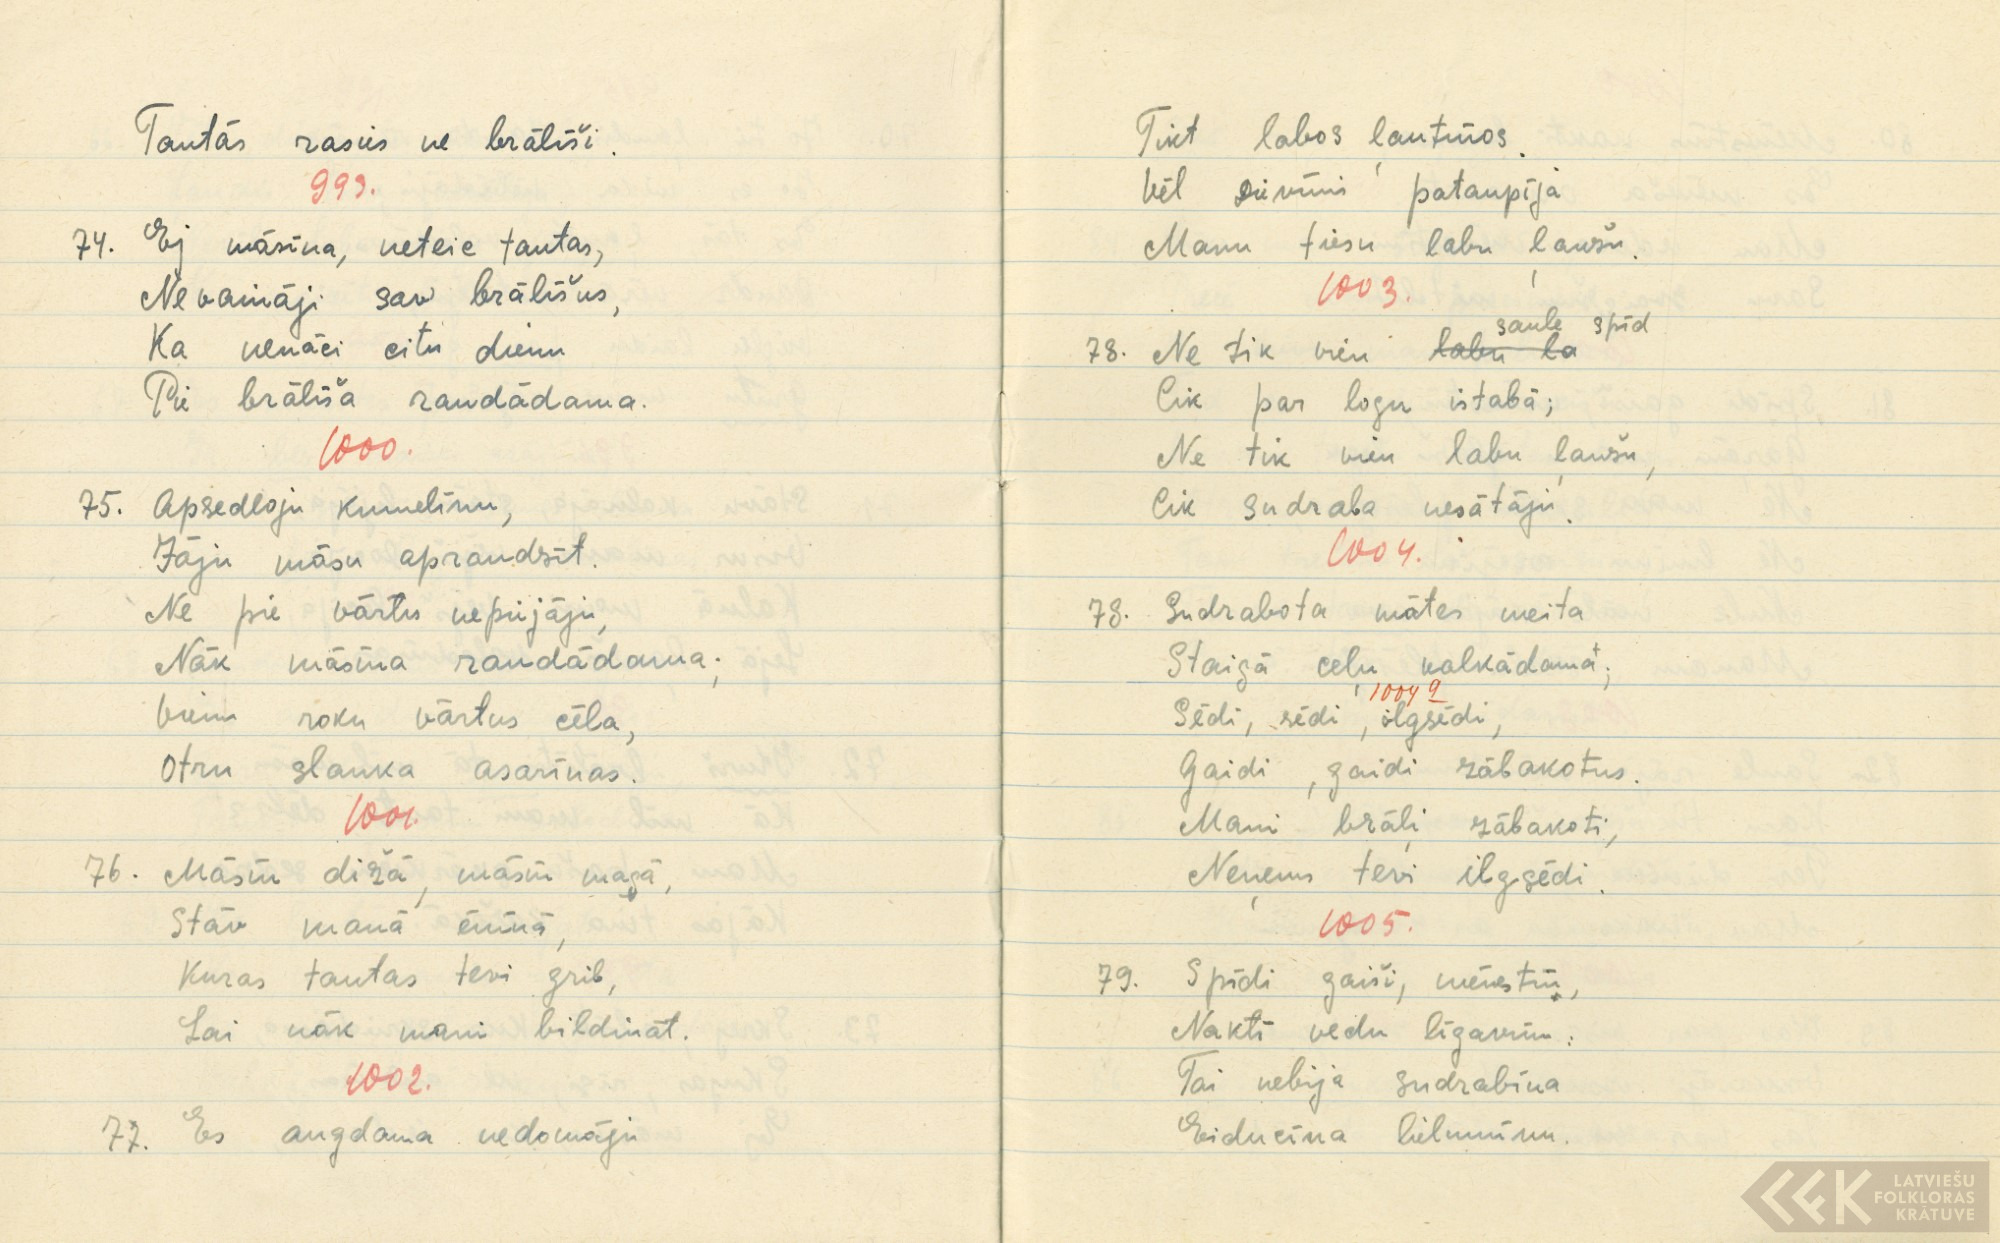 Tautās rasiš ne brālīši.
999.
74. Ej māsiņa, neteic tautas,
Nevaināji sav brālīšus,
Ka nenāci citu dienu
Pie brālīša raudādama.
1000.
75. Apsedloju kumeliņu,
Jāju māsu apraudzīt.
Ne pie vārtu nepiijāju,
Nāk māsiņa raudādama;
Vienu roku vārtus cēla,
Otru slauka asariņas.
1001.
76. Māsiņ dižā, māsiņ mazā,
Stāv manā ēniņā,
Kuras tautas tevi grib,
Lai nāk mani bildināt.
1002.
77. Es augdama nedomāju
Tikt labos ļautiņos.
Vēl Dieviņis pataupīja
Manu tiesu labu ļaužu.
1003.
78. Ne tik vien labu la saule spīd
Cik par logu istabā;
Ne tik vien labu ļaužu,
Cik sudraba nesātāju.
1004.
78. Sudrabota mātes meita
Staigā ceļu valkādamā;
1004 a
Sēdi, sēdi, ilgsēdi,
Gaidi, gaidi zābakotus.
Mani brāļi zābakoti,
Neņems tevi ilgsēdi.
1005.
79. Spīdi gaiši, mēnestiņ,
Naktī vedu līgaviņ:
Tai nebija sudrabiņa
Eiduciņa lielumiņu.
LATVIEŠU
FOLKLORAS
KRĀTUVE